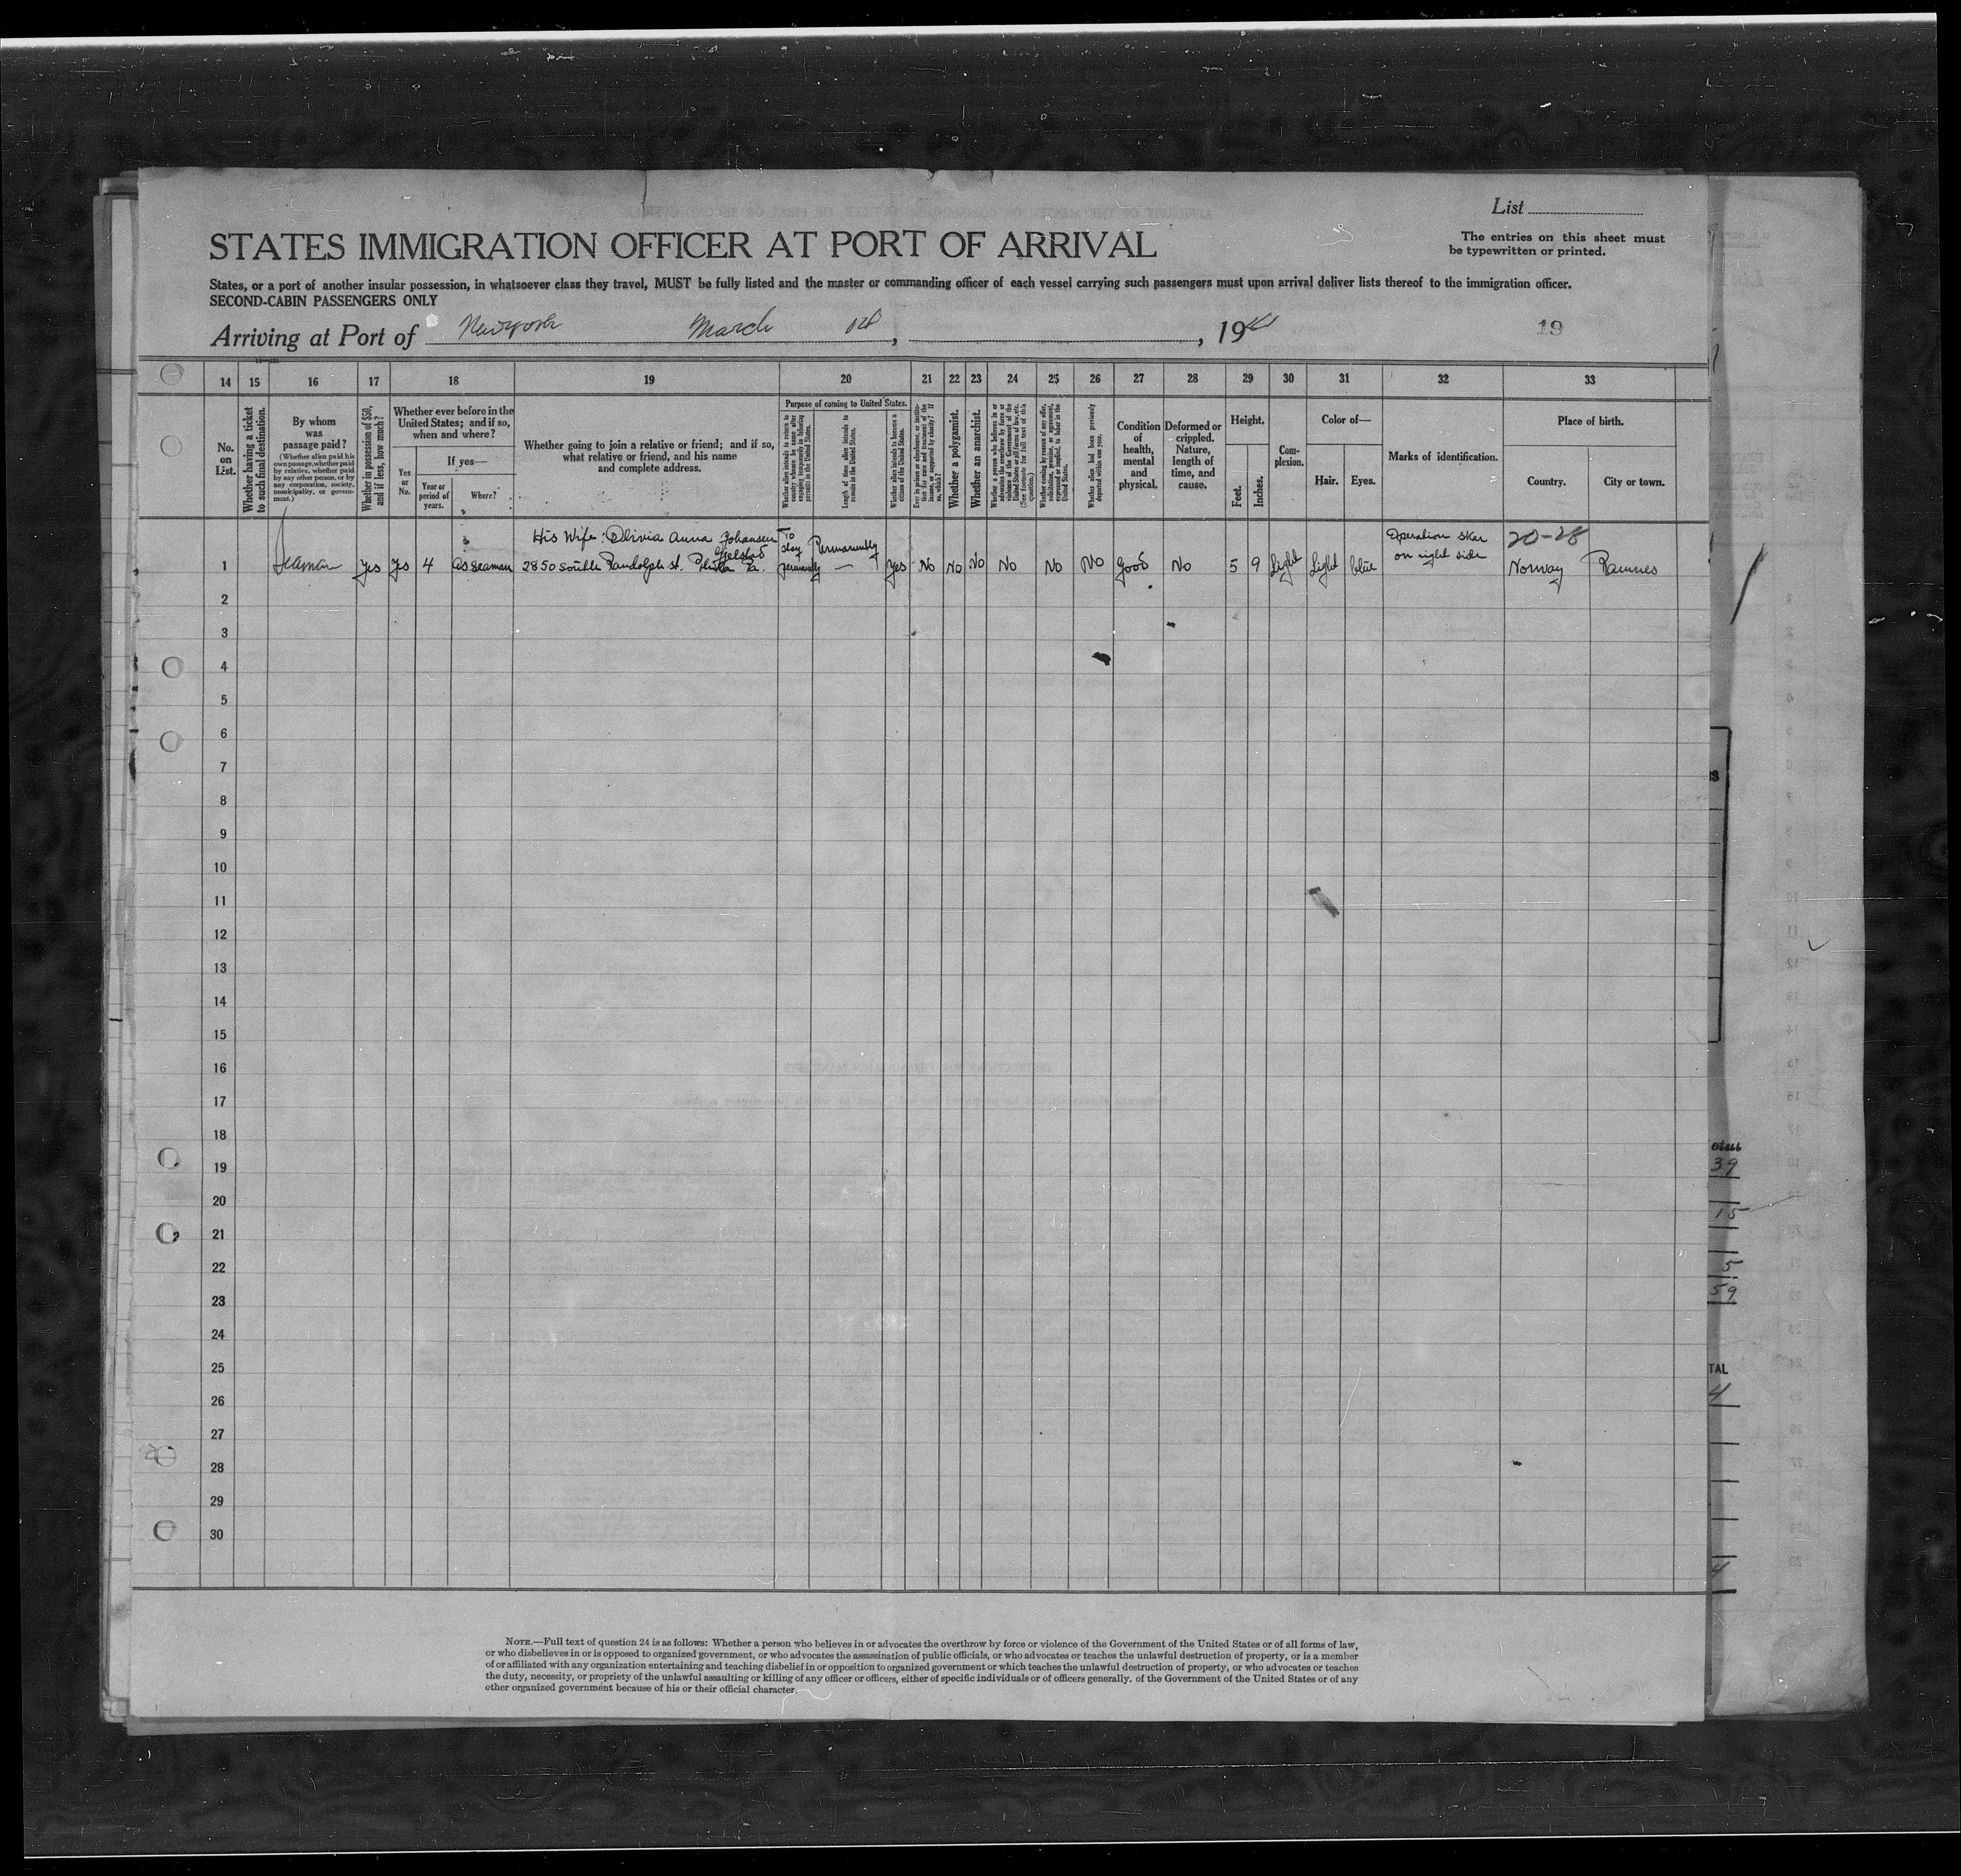 List
STATES IMMIGRATION OFFICER AT PORT OF ARRIVAL
The entries on this sheet must
be typewritten or printed.
States, or a port of another insular possession, in whatsoever class they travel, MUST be fully listed and the master or commanding officer of each vessel carrying such passengers must upon arrival deliver lists thereof to the immigration officer.
SECOND-CABIN PASSENGERS ONLY
Arriving at Port of Newyork March , , 19
19
14 15 16 17 18 19 20 21 22 23 24 25 26 27 28 29 30 31 32 33
No. on List.
Whether having a ticket to such final destination.
By whom was passage paid?
(Whether alien paid his own passage, whether paid by relative, whether paid by any other person, or by any corporation, society, municipality, or government.)
Whether in possession of $50, and if less, how much?
Whether ever before in the United States; and if so, when and where?
Yes or No.
If yes—
Year or period of years.
Where?
Whether going to join a relative or friend; and if so, what relative or friend, and his name and complete address.
Purpose of coming to United States.
Whether alien intends to return to country whence he came after engaging temporarily in laboring pursuits in the United States.
Length of time alien intends to remain in the United States.
Whether alien intends to become a citizen of the United States.
Ever in prison or almshouse, or institution for care and treatment of the insane, or supported by charity? If so, which?
Whether a polygamist.
Whether an anarchist.
Whether a person who believes in or advocates the overthrow by force or violence of the Government of the United States or all forms of law, etc. (See footnote for full text of this question.)
Whether coming by reason of any offer, solicitation, promise, or agreement, expressed or implied, to labor in the United States.
Whether alien had been previously deported within one year.
Condition of health, mental and physical.
Deformed or crippled. Nature, length of time, and cause.
Height.
Feet. Inches.
Complexion.
Color of—
Hair. Eyes.
Marks of identification.
Place of birth.
Country. City or town.
His Wife: Olivia Anna Johansen To stay Permanently Operation skar 20-28
Gjelstad on right side
1 Seaman Yes Yes 4 as seaman 2850 South Randolph st. Phila Pa. permanently — Yes No No No No No No Good No 5 9 Light Light blue Norway Ramnes
2
3
4
5
6
7
8
9
10
11
12
13
14
15
16
17
18
19
20
21
22
23
24
25
26
27
28
29
30
39
15
5
59
TAL
4
4
NOTE.—Full text of question 24 is as follows: Whether a person who believes in or advocates the overthrow by force or violence of the Government of the United States or of all forms of law,
or who disbelieves in or is opposed to organized government, or who advocates the assassination of public officials, or who advocates or teaches the unlawful destruction of property, or is a member
of or affiliated with any organization entertaining and teaching disbelief in or opposition to organized government or which teaches the unlawful destruction of property, or who advocates or teaches
the duty, necessity, or propriety of the unlawful assaulting or killing of any officer or officers, either of specific individuals or of officers generally. of the Government of the United States or of any
other organized government because of his or their official character.